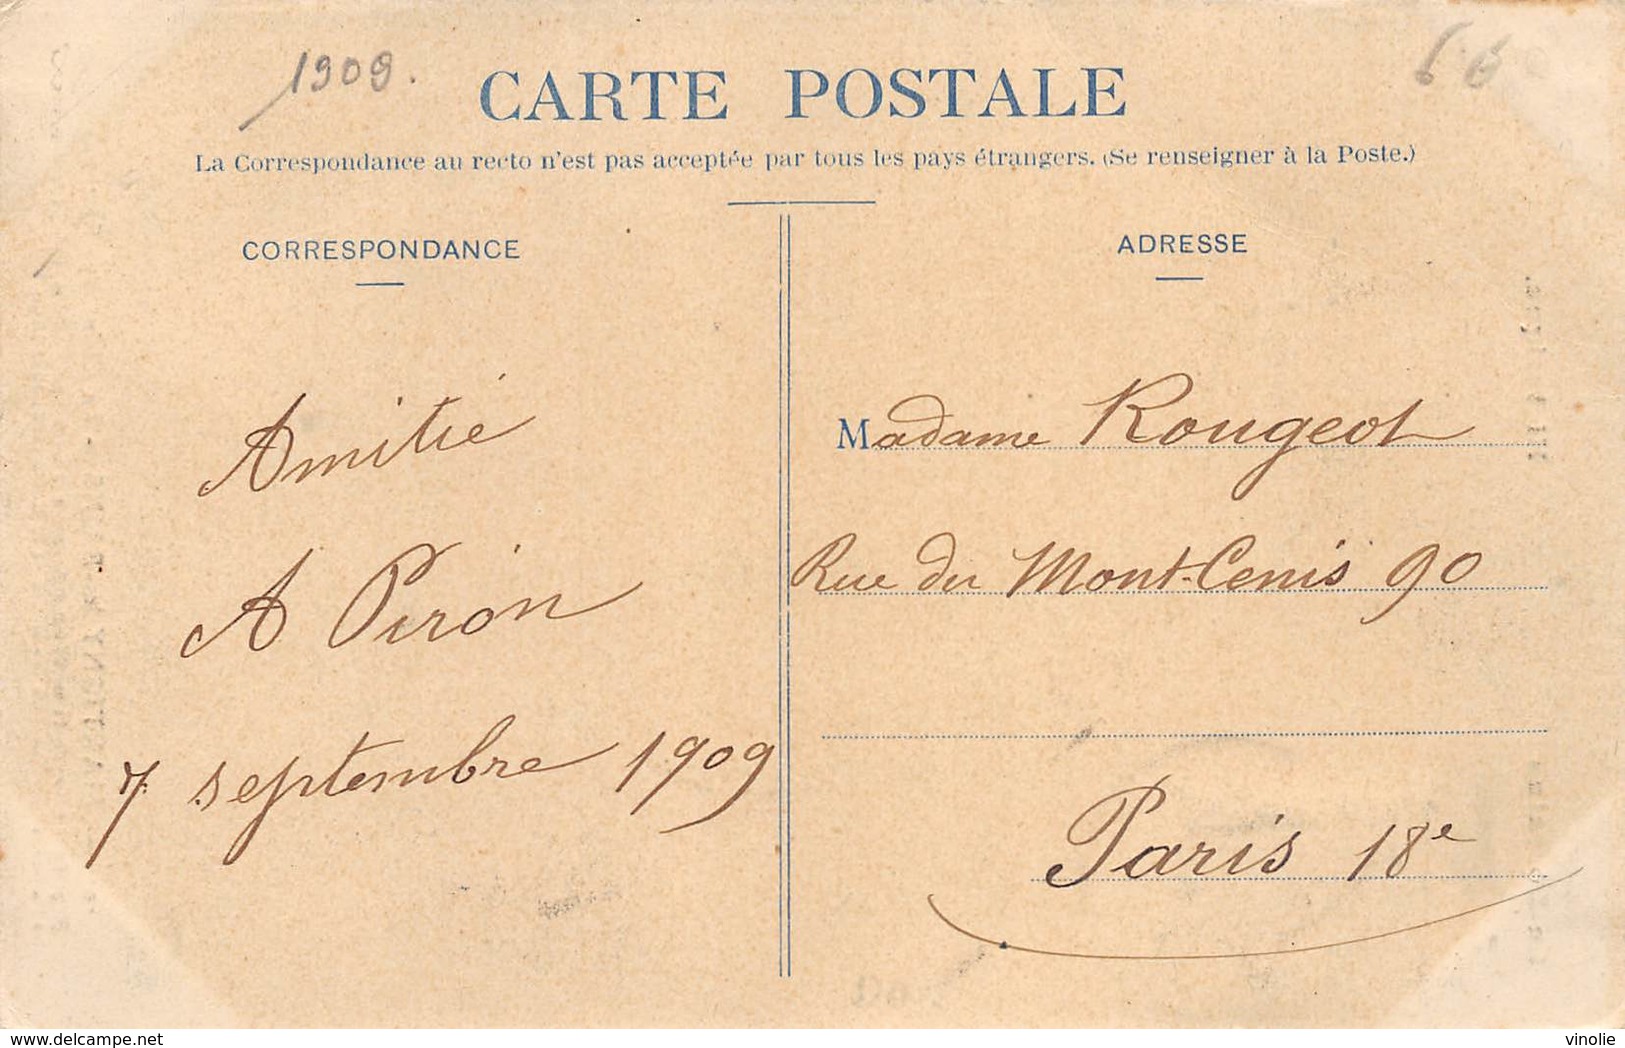 1909.
6.6
CARTE POSTALE
La Correspondance au recto n'est pas acceptée par tous les pays étrangers. (Se renseigner à la Poste.)
CORRESPONDANCE
Amitié
A Piron
7 septembre 1909
ADRESSE
Madame Rougeot
Rue du Mont-Cenis 90
Paris 18e
delcampe.net
vinolie